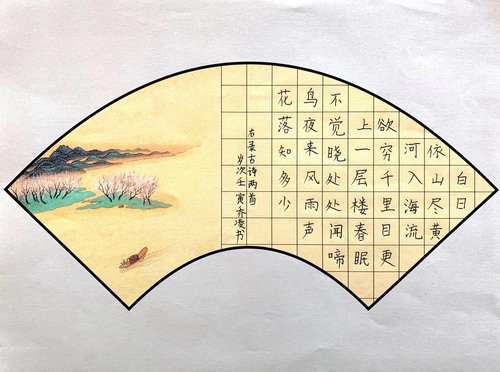 白日
依山尽黄
河入海流
欲穷千里目更
上一层楼春眠
不觉晓处处闻啼
鸟夜来风雨声
花落知多少
右录古诗两首
岁次壬寅凌书